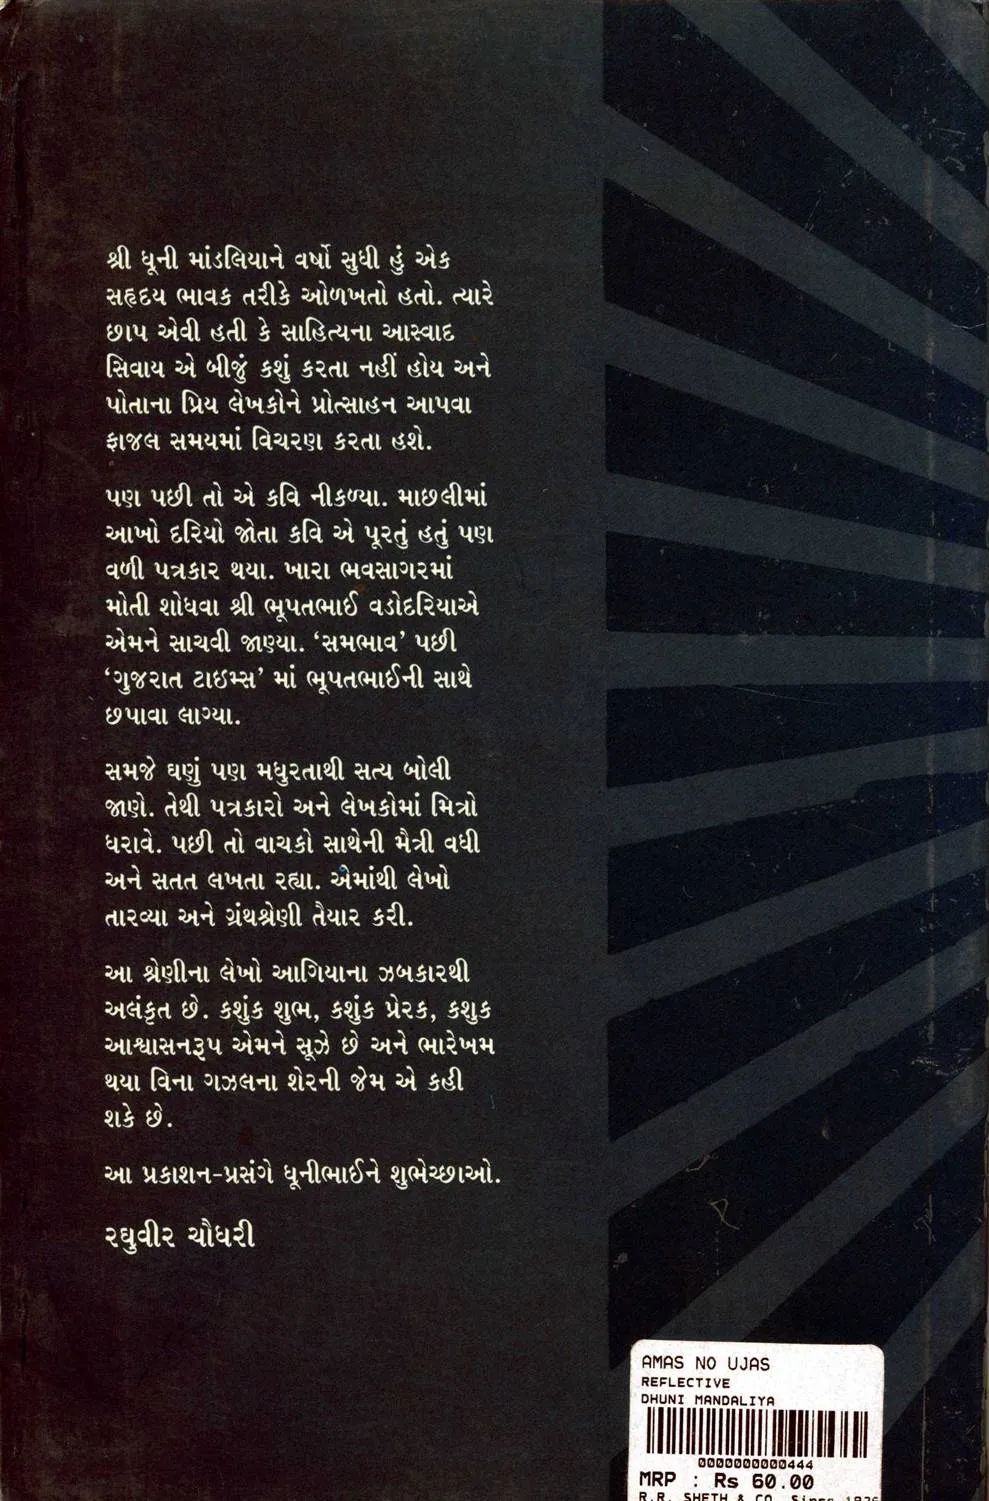 શ્રી ધૂની માંડલિયાને વર્ષો સુધી હું એક
સહૃદય ભાવક તરીકે ઓળખતો હતો. ત્યારે
છાપ એવી હતી કે સાહિત્યના આસ્વાદ
સિવાય એ બીજું કશું કરતા નહીં હોય અને
પોતાના પ્રિય લેખકોને પ્રોત્સાહન આપવા
ફાજલ સમયમાં વિચરણ કરતા હશે.
પણ પછી તો એ કવિ નીકળ્યા. માછલીમાં
આખો દરિયો જોતા કવિ એ પૂરતું હતું પણ
વળી પત્રકાર થયા. ખારા ભવસાગરમાં
મોતી શોધવા શ્રી ભૂપતભાઈ વડોદરિયાએ
એમને સાચવી જાણ્યા. ‘સમભાવ’ પછી
‘ગુજરાત ટાઇમ્સ’ માં ભૂપતભાઈની સાથે
છપાવા લાગ્યા.
સમજે ઘણું પણ મધુરતાથી સત્ય બોલી
જાણે. તેથી પત્રકારો અને લેખકોમાં મિત્રો
ધરાવે. પછી તો વાચકો સાથેની મૈત્રી વધી
અને સતત લખતા રહ્યા. એમાંથી લેખો
તારવ્યા અને ગ્રંથશ્રેણી તૈયાર કરી.
આ શ્રેણીના લેખો આગિયાના ઝબકારથી
અલંકૃત છે. કશુંક શુભ, કશુંક પ્રેરક, કશુક
આશ્વાસનરૂપ એમને સૂઝે છે અને ભારેખમ
થયા વિના ગઝલના શેરની જેમ એ કહી
શકે છે.
આ પ્રકાશન-પ્રસંગે ધૂનીભાઈને શુભેચ્છાઓ.
રઘુવીર ચૌધરી
AMAS NO UJAS
REFLECTIVE
DHUNI MANDALIYA
0000000000444
MRP : Rs 60.00
R.R. SHETH & CO. Since 1926